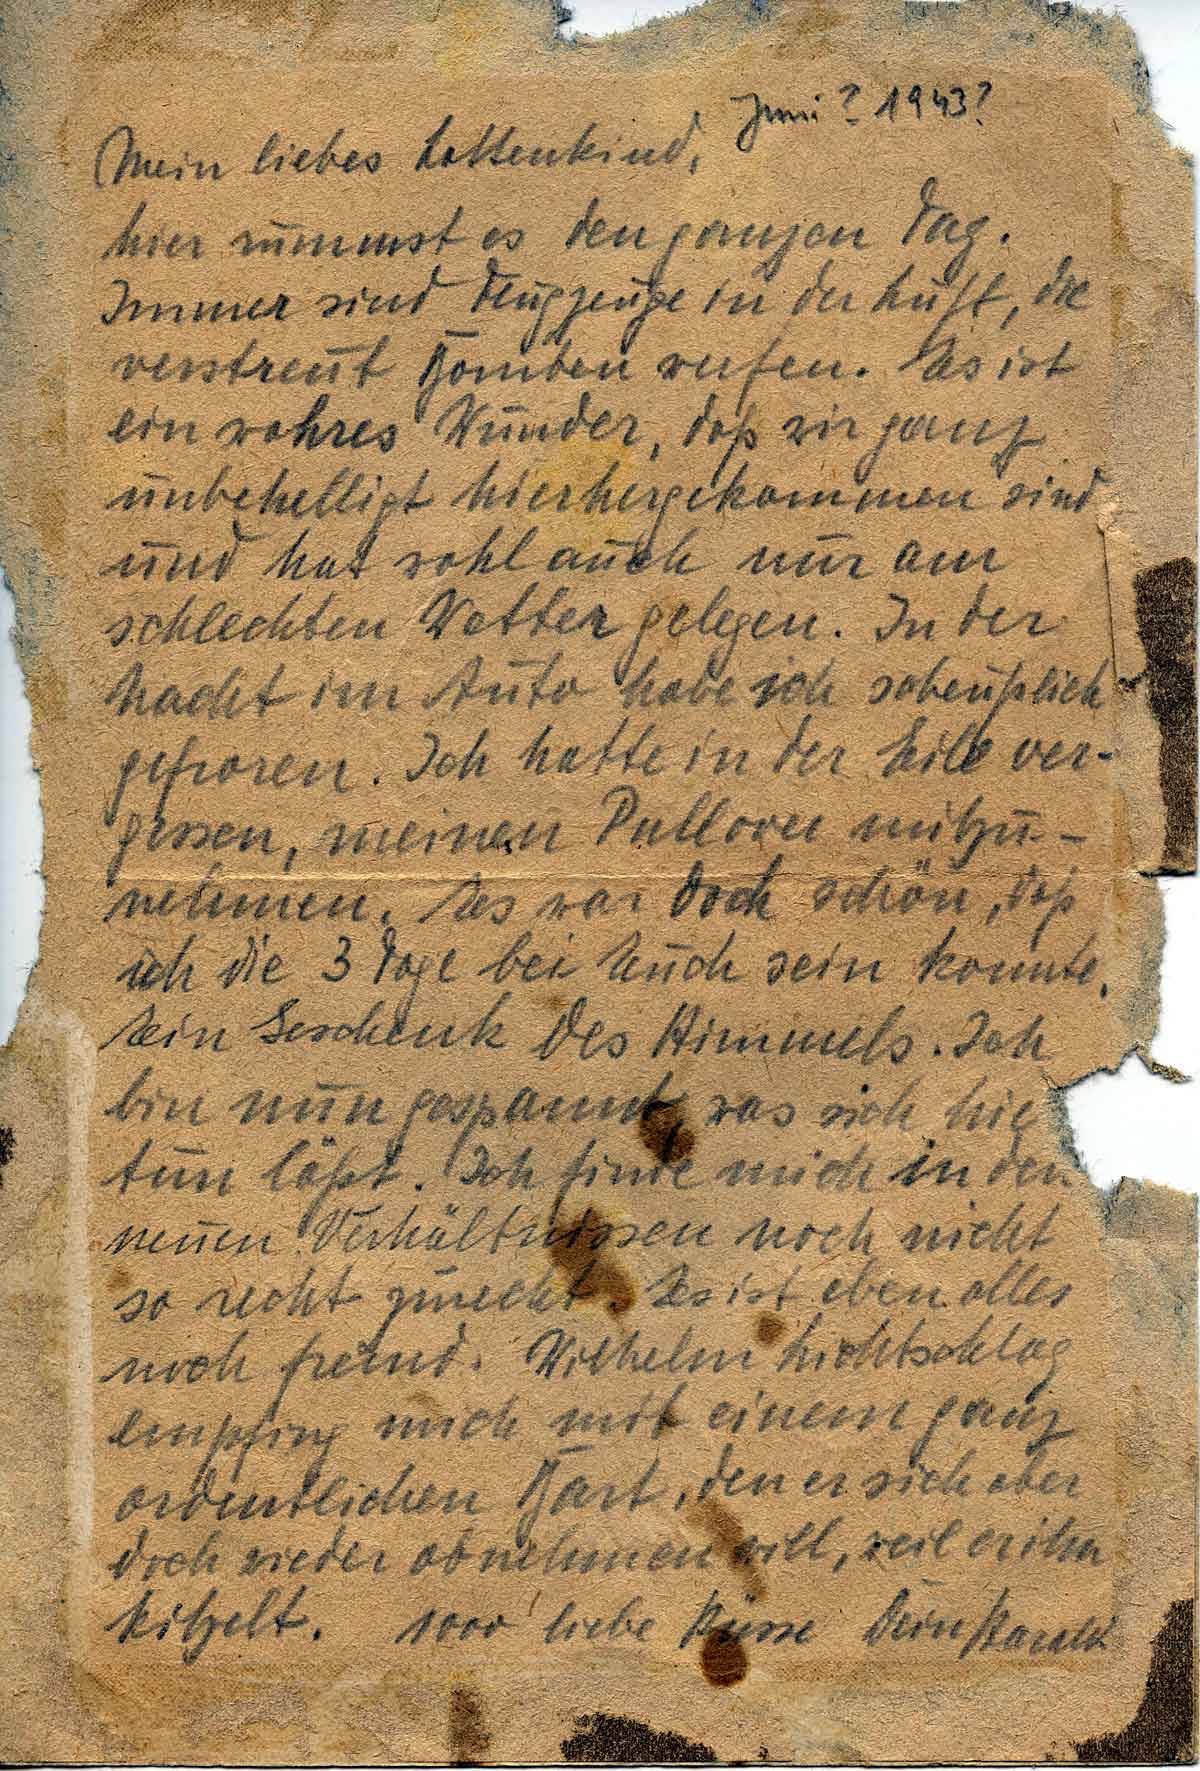 Juni? 1943?
Mein liebes Lottenkind,
hier rummst es den ganzen Tag.
Immer sind Flugzeuge in der Luft, die
verstreut Bomben werfen. Es ist
ein wahres Wunder, daß wir ganz
unbehelligt hierhergekommen sind
und hat wohl auch nur am
schlechten Wetter gelegen. In der
Nacht im Auto habe ich scheußlich
gefroren. Ich hatte in der Eile ver-
gessen, meinen Pullover mitzu-
nehmen. Es war doch schön, daß
ich die 3 Tage bei Euch sein konnte.
Ein Geschenk des Himmels. Ich
bin nun gespannt, was sich hier
tun läßt. Ich finde mich in den
neuen Verhältnissen noch nicht
so recht zurecht. Es ist eben alles
noch fremd. Wilhelm Lichtschlag
empfing mich mit einem ganz
ordentlichen Bart, den er sich aber
doch wieder abnehmen will, weil er ihn
kitzelt. 1000 liebe Küsse Dein Harald